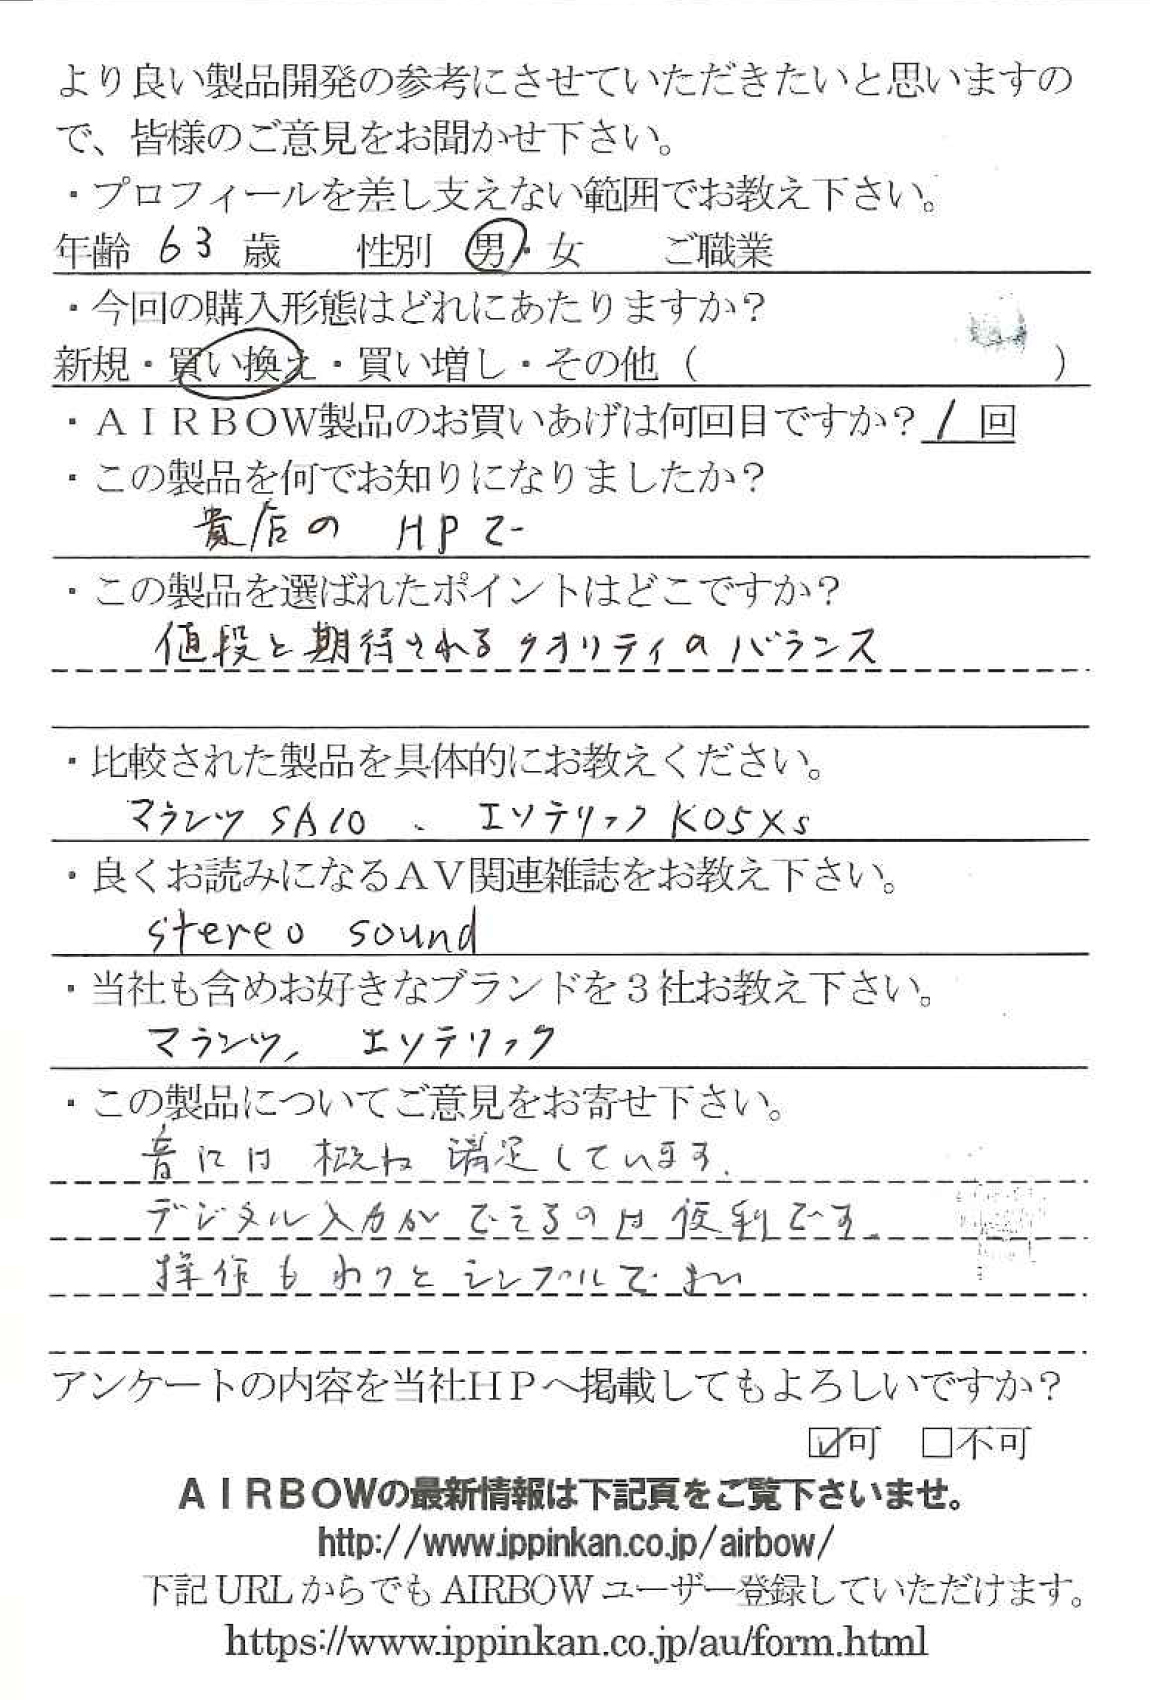 より良い製品開発の参考にさせていただきたいと思いますの
で、皆様のご意見をお聞かせ下さい。
・プロフィールを差し支えない範囲でお教え下さい。
年齢 63 歳 性別 男・女 ご職業
・今回の購入形態はどれにあたりますか?
新規・買い換え・買い増し・その他 ( )
・ＡＩＲＢＯＷ製品のお買いあげは何回目ですか? 1 回
・この製品を何でお知りになりましたか?
貴店の HPで
・この製品を選ばれたポイントはどこですか?
値段と期待されるクオリティのバランス
・比較された製品を具体的にお教えください。
マランツ SA10 、 エソテリック K05Xs
・良くお読みになるＡＶ関連雑誌をお教え下さい。
stereo sound
・当社も含めお好きなブランドを３社お教え下さい。
マランツ, エソテリック
・この製品についてご意見をお寄せ下さい。
音には 概ね 満足しています.
デジタル入力ができるのは便利です。
操作もわりとシンプルでよい
アンケートの内容を当社ＨＰへ掲載してもよろしいですか?
☑可 □不可
ＡＩＲＢＯＷの最新情報は下記頁をご覧下さいませ。
http://www.ippinkan.co.jp/airbow/
下記 URL からでも AIRBOW ユーザー登録していただけます。
https://www.ippinkan.co.jp/au/form.html